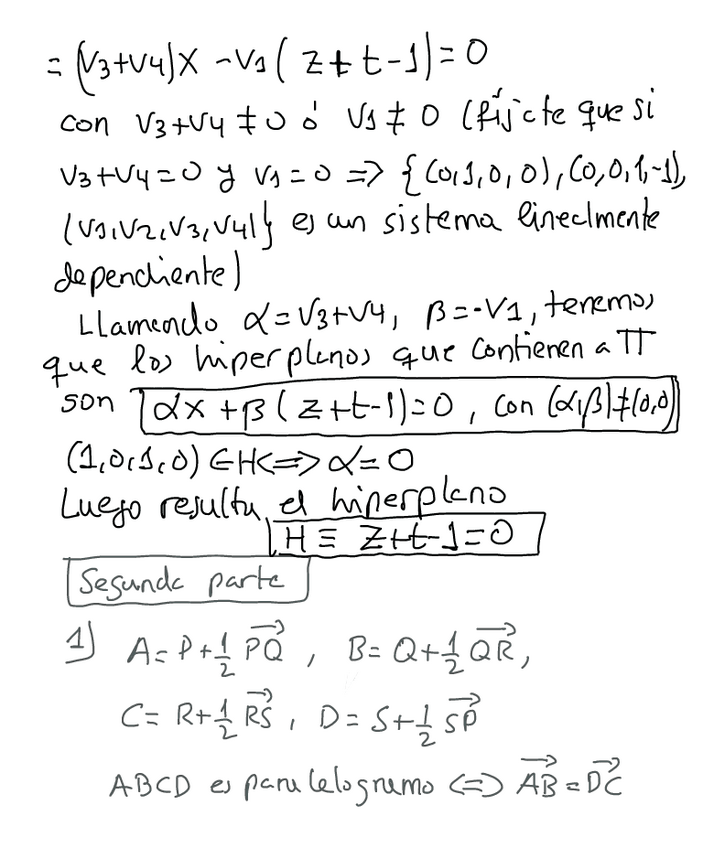 = (V3+V4)X - V1 ( Z + t - 1) = 0
con V3+V4 ≠ 0 ó V1 ≠ 0 (fíjate que si
V3+V4 = 0 y V1 = 0 => { (0,1,0,0), (0,0,1,-1),
(V1,V2,V3,V4)} es un sistema linealmente
dependiente)
Llamando α = V3+V4, β = -V1, tenemos
que los hiperplanos que contienen a π
son αx + β ( z+t-1) = 0 , con (α,β) ≠ (0,0)
(1,0,1,0) ∈ H <=> α = 0
Luego resulta el hiperplano
H ≡ Z+t-1 = 0
Segunda parte
1) A = P + 1/2 PQ⃗ , B = Q + 1/2 QR⃗ ,
C = R + 1/2 RS⃗ , D = S + 1/2 SP⃗
ABCD es paralelogramo <=> AB⃗ = DC⃗